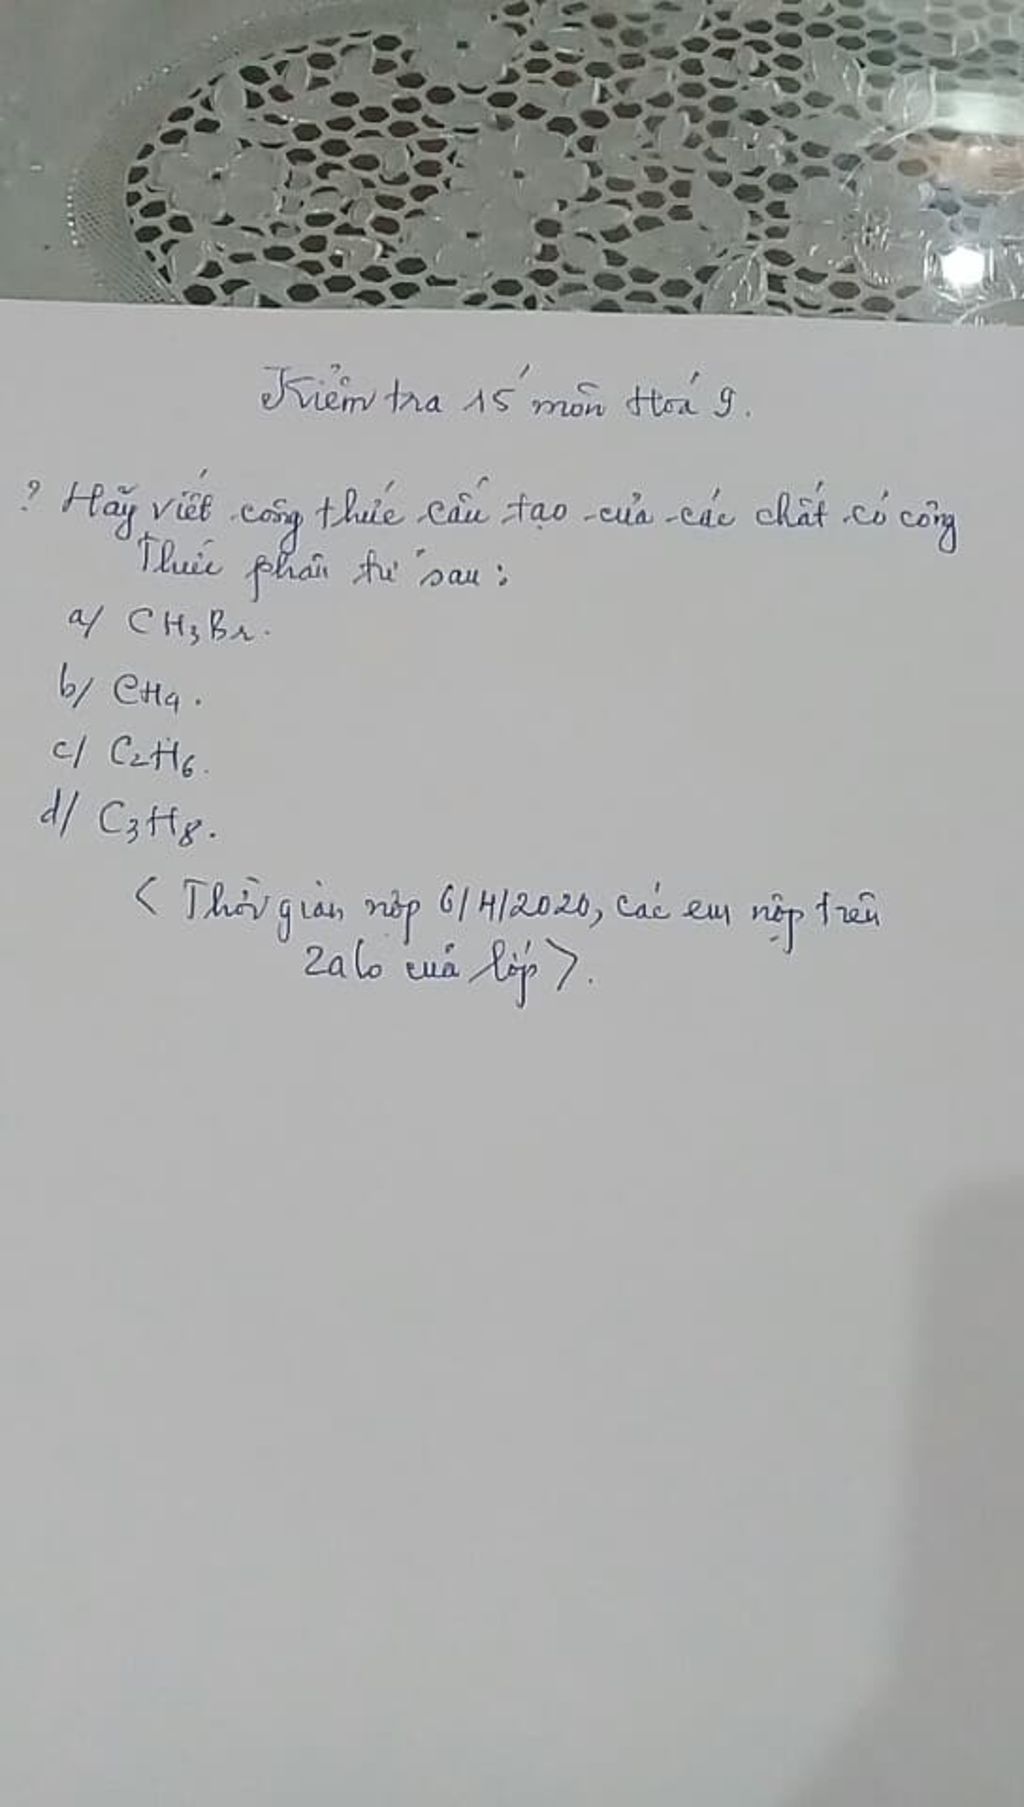 Kiểm tra 15' môn Hoá 9.
? Hãy viết công thức cấu tạo của các chất có công
Thức phân tử sau:
a/ CH₃Br.
b/ CH₄.
c/ C₂H₆.
d/ C₃H₈.
< Thời gian nộp 6/4/2020, các em nộp trên
Zalo của lớp >.